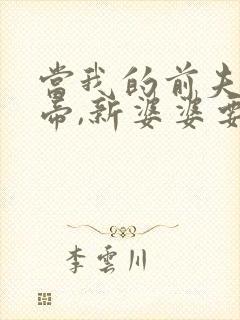 當我的前夫
帝,新婆婆要
李雲川